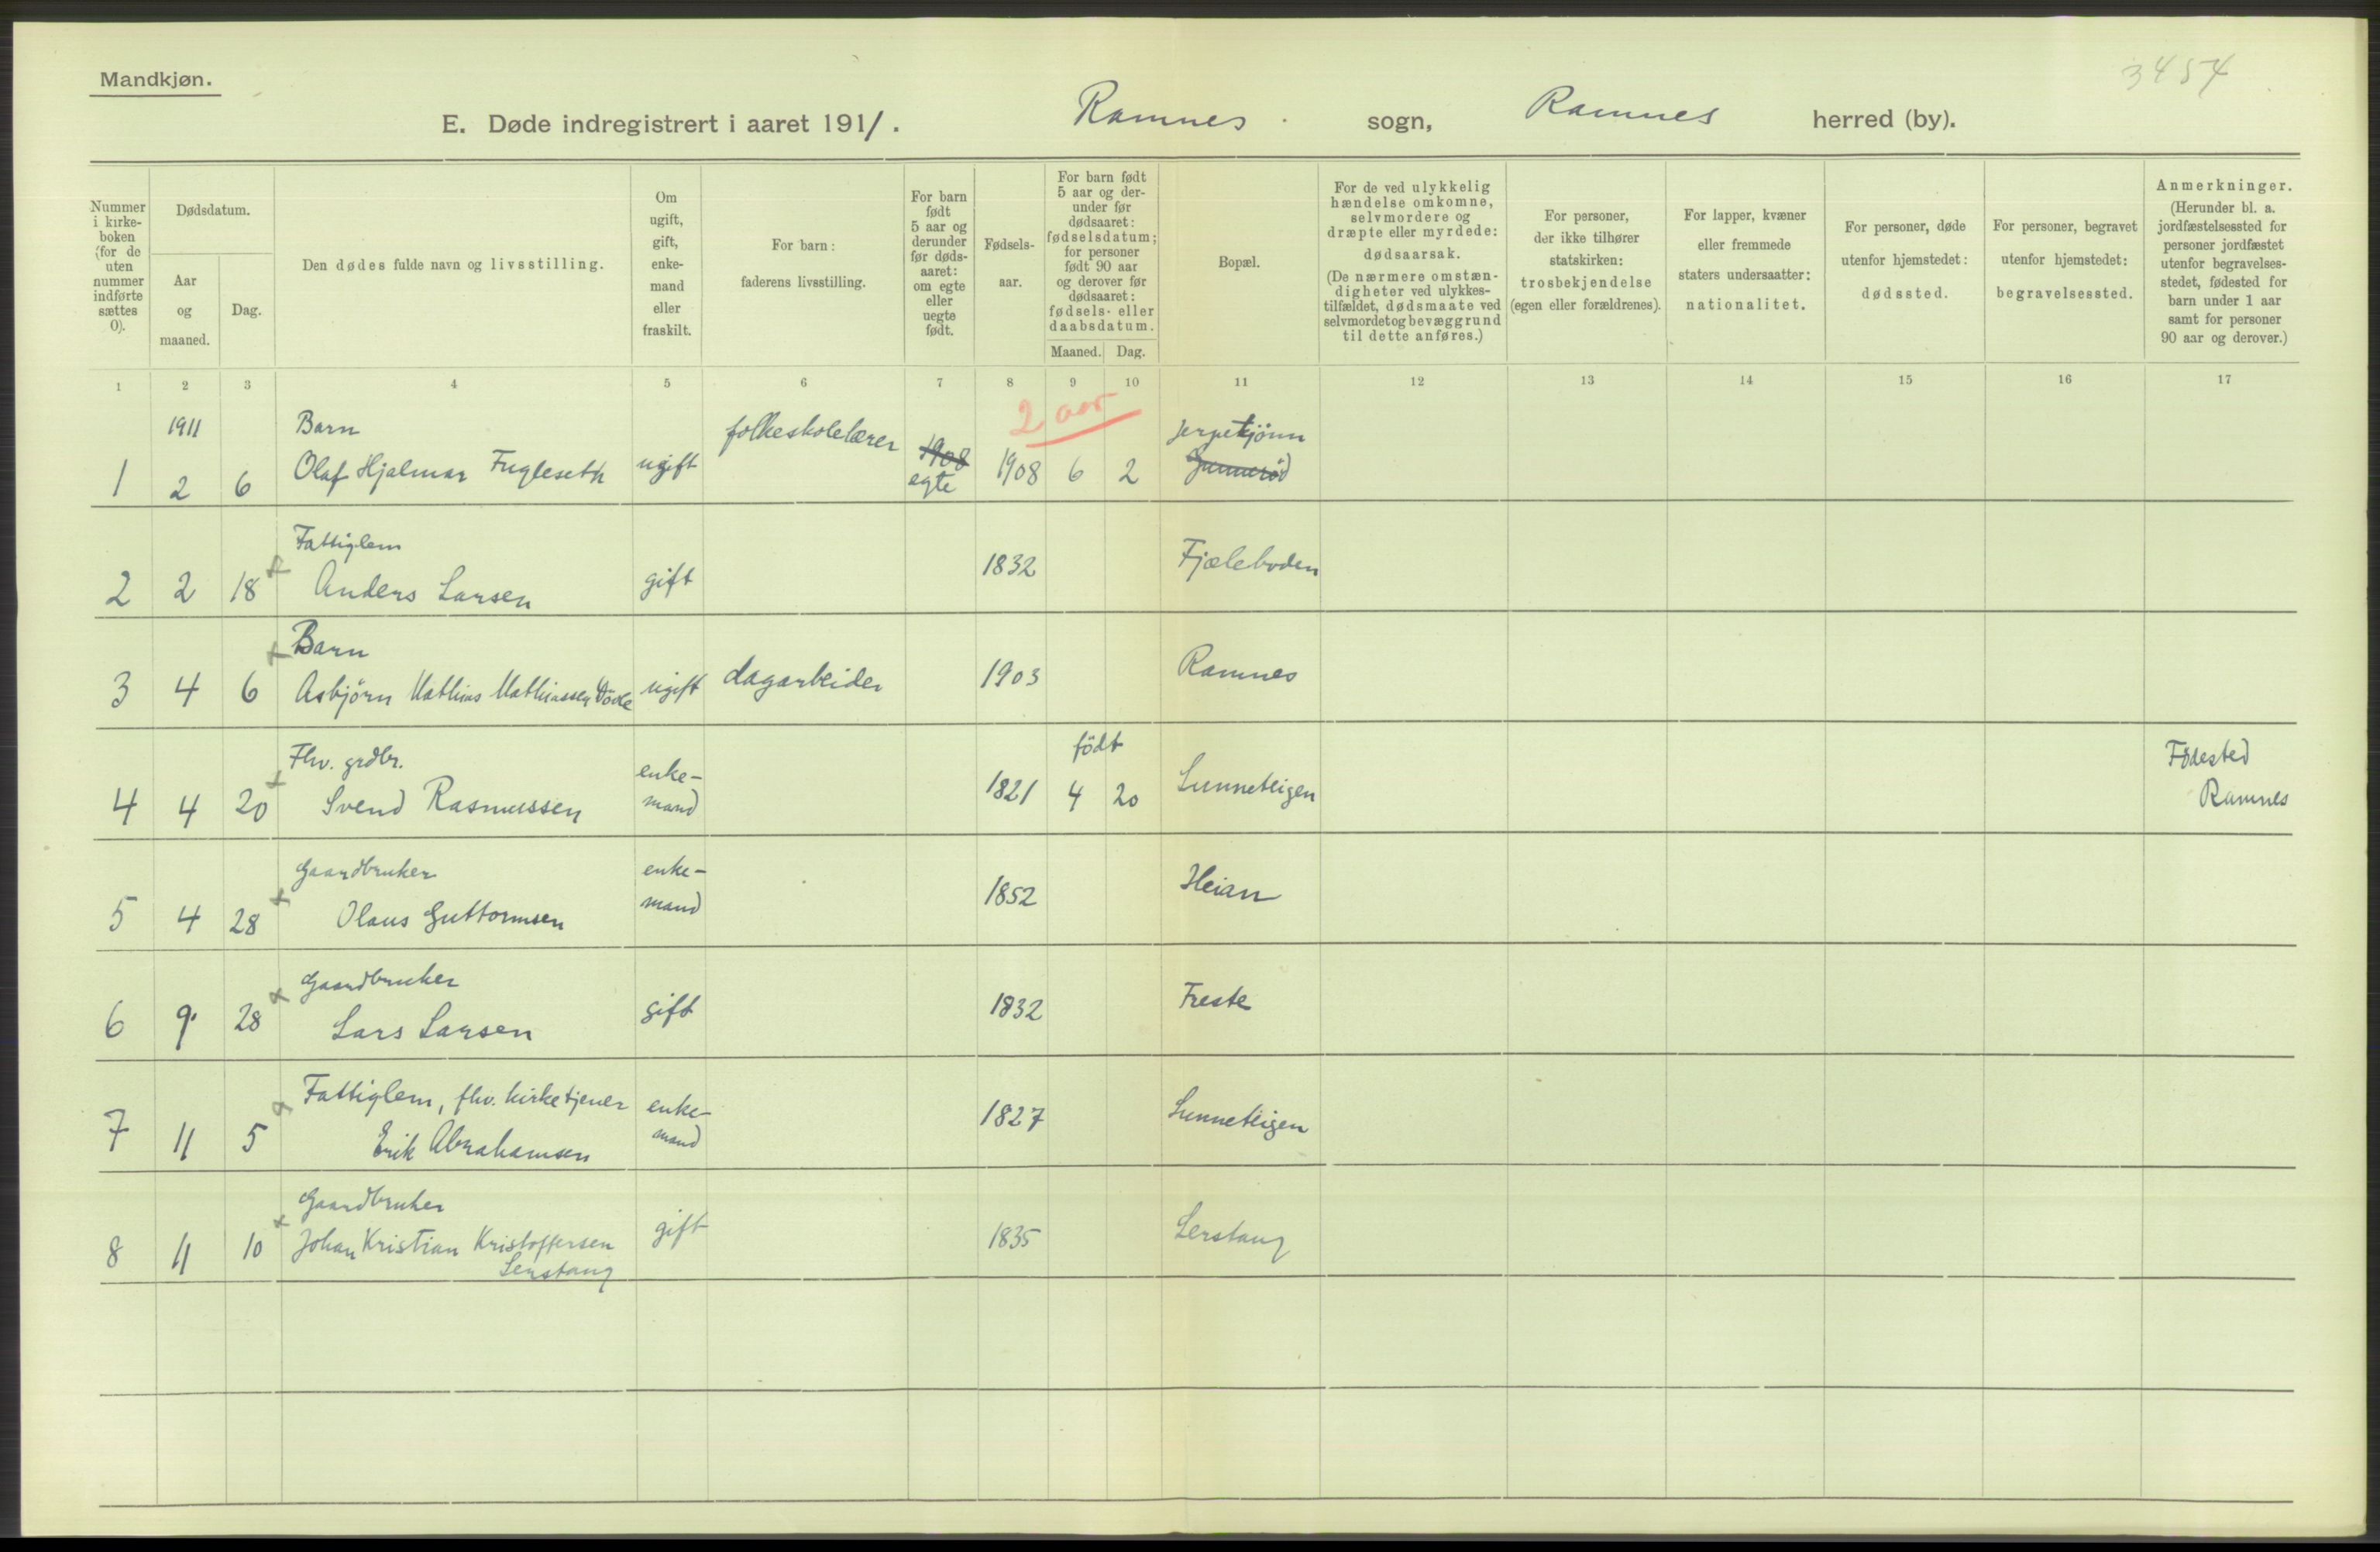 Mandkjøn.
3454
E. Døde indregistrert i aaret 1911. Ramnes sogn, Ramnes herred (by).
Nummer i kirke-boken (for de uten nummer indførte sættes 0).
Dødsdatum.
Aar og maaned.
Dag.
Den dødes fulde navn og livsstilling.
Om ugift, gift, enke-mand eller fraskilt.
For barn: faderens livsstilling.
For barn født 5 aar og derunder før døds-aaret: om egte eller uegte født.
Fødsels-aar.
For barn født 5 aar og der-under før dødsaaret: fødselsdatum; for personer født 90 aar og derover før dødsaaret: fødsels- eller daabsdatum.
Maaned. Dag.
Bopæl.
For de ved ulykkelig hændelse omkomne, selvmordere og dræpte eller myrdede: dødsaarsak. (De nærmere omstæn-digheter ved ulykkes-tilfældet, dødsmaate ved selvmordet og bevæggrund til dette anføres.)
For personer, der ikke tilhører statskirken: trosbekjendelse (egen eller forældrenes).
For lapper, kvæner eller fremmede staters undersaatter: nationalitet.
For personer, døde utenfor hjemstedet: dødssted.
For personer, begravet utenfor hjemstedet: begravelsessted.
Anmerkninger. (Herunder bl. a. jordfæstelsessted for personer jordfæstet utenfor begravelses-stedet, fødested for barn under 1 aar samt for personer 90 aar og derover.)
1 2 3 4 5 6 7 8 9 10 11 12 13 14 15 16 17
2 aar
1911 Barn folkeskolelærer 1908 Jerpekjönn
1 2 6 Olaf Hjalmar Fugleseth ugift egte 1908 6 2 Gunnerød
Fattiglem
2 2 18 Anders Larsen gift 1832 Fjæleboden
Barn
3 4 6 Asbjörn Mathias Mathiassen ugift dagarbeider 1903 Ramnes
Fhv. grdbr. enke- født Födested
4 4 20 Svend Rasmussen mand 1821 4 20 Linneteigen Ramnes
Gaardbruker enke-
5 4 28 Olaus Guttormsen mand 1852 Heian
Gaardbruker
6 9 28 Lars Larsen gift 1832 Freste
Fattiglem, fhv. kirketjener enke-
7 11 5 Erik Abrahamsen mand 1827 Linneteigen
Gaardbruker
8 11 10 Johan Kristian Kristoffersen gift 1835 Lerstang
Lerstang